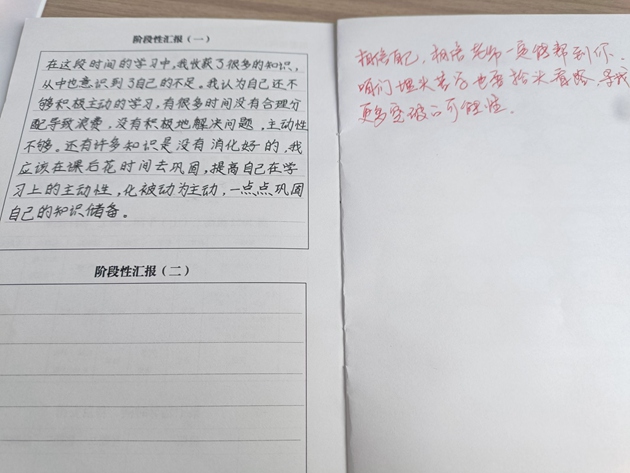 阶段性汇报（一）
在这段时间的学习中，我收获了很多的知识，
从中也意识到了自己的不足。我认为自己还不
够积极主动的学习，有很多时间没有合理分
配导致浪费，没有积极地解决问题，主动性
不够。还有许多知识是没有消化好的，我
应该在课后花时间去巩固，提高自己在学
习上的主动性，化被动为主动，一点点巩固
自己的知识储备。
阶段性汇报（二）
相信自己，相信老师一定能帮到你.
咱们埋头苦学也要抬头看路，寻找
更多突破的可能性.